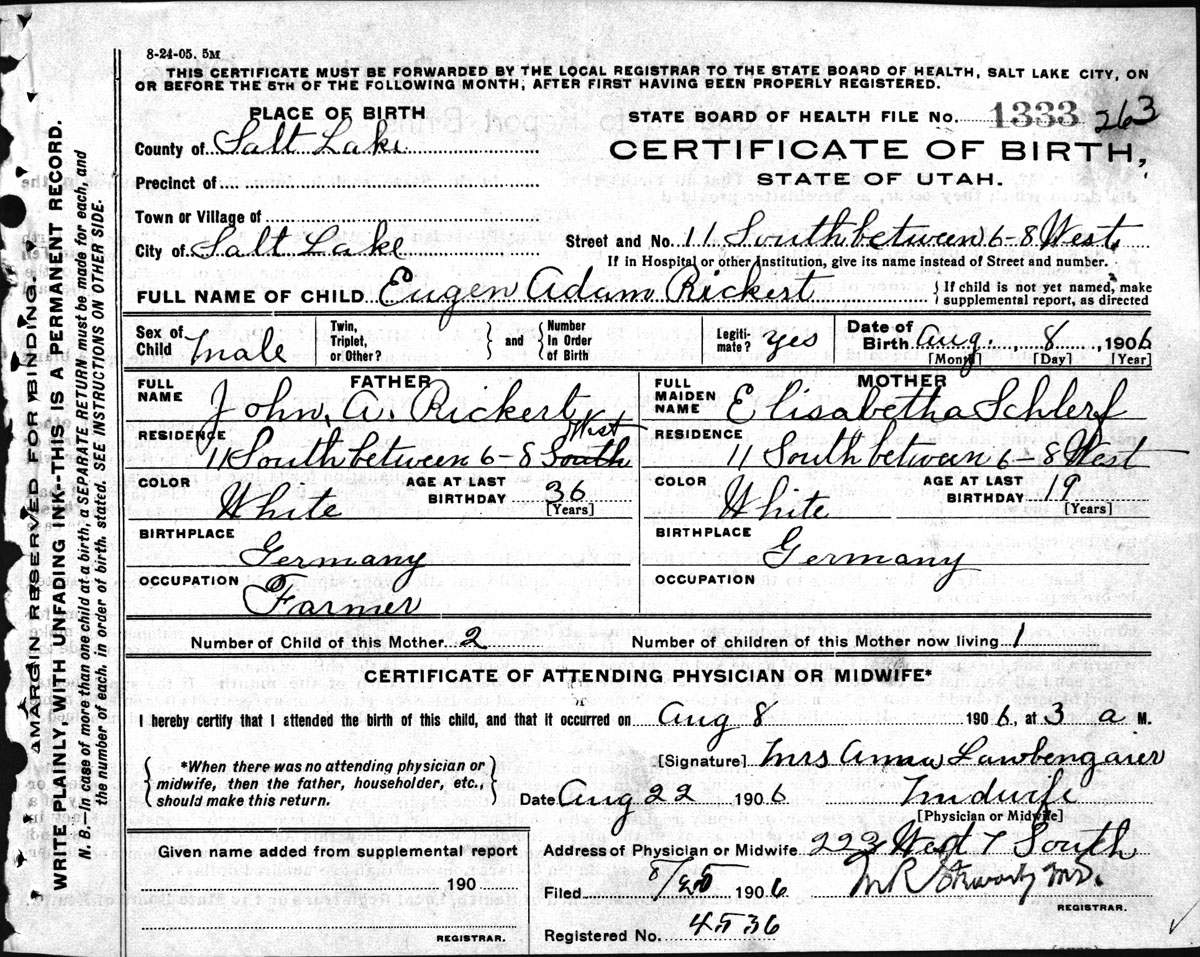 8-24-05. 5M
THIS CERTIFICATE MUST BE FORWARDED BY THE LOCAL REGISTRAR TO THE STATE BOARD OF HEALTH, SALT LAKE CITY, ON
OR BEFORE THE 5TH OF THE FOLLOWING MONTH, AFTER FIRST HAVING BEEN PROPERLY REGISTERED.
PLACE OF BIRTH
STATE BOARD OF HEALTH FILE No. 1333 263
County of Salt Lake
CERTIFICATE OF BIRTH,
Precinct of
STATE OF UTAH.
Town or Village of
City of Salt Lake
Street and No. 11 South between 6-8 West
If in Hospital or other Institution, give its name instead of Street and number.
FULL NAME OF CHILD Eugen Adam Rickert
If child is not yet named, make
supplemental report, as directed
Sex of Child Male
Twin, Triplet, or Other?
and
Number In Order of Birth
Legiti-mate? yes
Date of Birth Aug. 8, 1906
[Month] [Day] [Year]
FATHER
FULL NAME John. A. Rickert
RESIDENCE
11 South between 6-8 South West
COLOR White
AGE AT LAST BIRTHDAY 36
[Years]
BIRTHPLACE
Germany
OCCUPATION
Farmer
MOTHER
FULL MAIDEN NAME Elisabetha Schlerf
RESIDENCE
11 South between 6-8 West
COLOR White
AGE AT LAST BIRTHDAY 19
[Years]
BIRTHPLACE
Germany
OCCUPATION
Number of Child of this Mother 2
Number of children of this Mother now living 1
CERTIFICATE OF ATTENDING PHYSICIAN OR MIDWIFE*
I hereby certify that I attended the birth of this child, and that it occurred on Aug 8 1906, at 3 a M.
*When there was no attending physician or
midwife, then the father, householder, etc.,
should make this return.
[Signature] Mrs Anna
Date Aug 22 1906
Midwife
[Physician or Midwife]
Given name added from supplemental report
190
REGISTRAR.
Address of Physician or Midwife 223 West 7 South
Filed 8/25 1906
M.D.
REGISTRAR.
Registered No. 4536
MARGIN RESERVED FOR BINDING.
WRITE PLAINLY, WITH UNFADING INK--THIS IS A PERMANENT RECORD.
N. B.—In case of more than one child at a birth, a SEPARATE RETURN must be made for each, and
the number of each, in order of birth, stated. SEE INSTRUCTIONS ON OTHER SIDE.